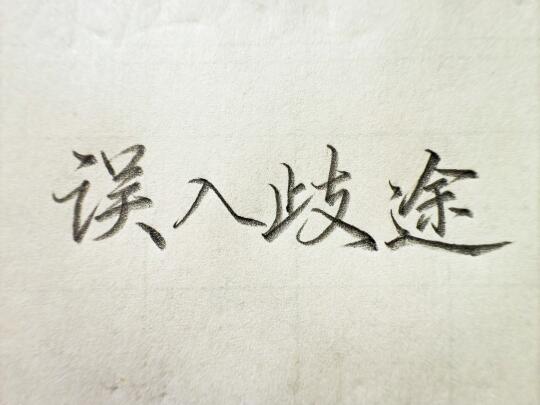 误入歧途